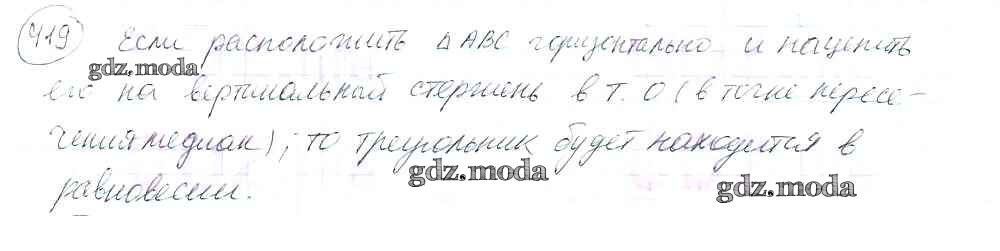 419 Если расположить ΔABC горизонтально и нацепить
gdz.moda
его на вертикальный стержень в т. O (в точке пересе-
чения медиан), то треугольник будет находится в
равновесии.
gdz.moda
gdz.moda